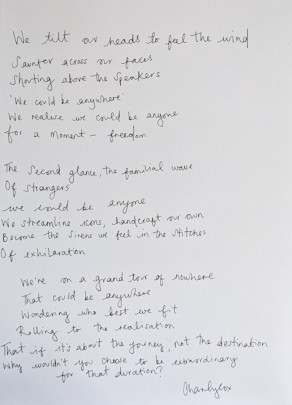 We tilt our heads to feel the wind
Saunter across our faces
Shouting above the speakers
'We could be anywhere'
We realise we could be anyone
for a moment – freedom
The second glance, the familial wave
Of strangers
we could be anyone
We streamline icons, handcraft our own
Become the sirens we feel in the stitches
Of exhilaration
We're on a grand tour of nowhere
That could be anywhere
Wondering who best we fit
Rolling to the realisation
That if it's about the journey, not the destination
Why wouldn't you choose to be extraordinary
for that duration?
Charlycox